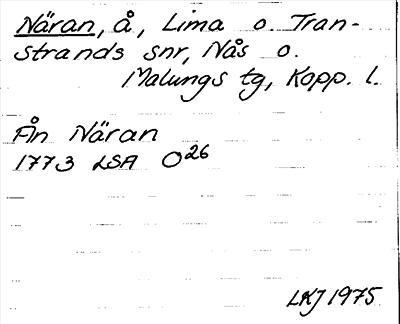 Näran, å, Lima o. Tran-
strands snr, Nås o.
Malungs tg, Kopp. l.
Ån Näran
1773 LSA O26
LKJ 1975